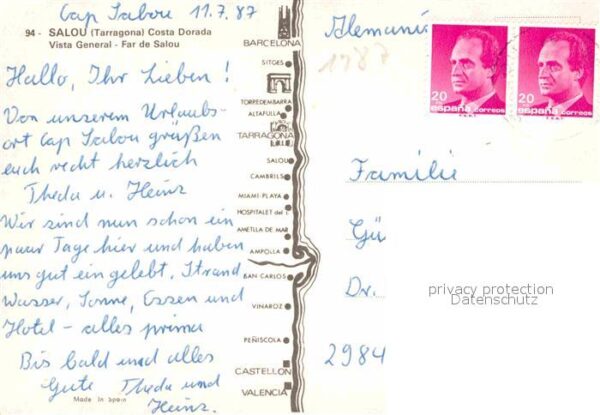 Cap Salou 11.7.87
94 - SALOU (Tarragona) Costa Dorada
Vista General - Far de Salou
Hallo, Ihr Lieben!
Von unserem Urlaubs-
ort Cap Salou grüßen
euch recht herzlich
Theda u. Heinz
Wir sind nun schon ein
paar Tage hier und haben
uns gut eingelebt. Strand
Wasser, Sonne, Essen und
Hotel - alles prima
Bis bald und alles
Gute Theda und
Heinz.
Made in Spain
BARCELONA
SITGES
TORREDEMBARRA
ALTAFULLA
TARRAGONA
SALOU
CAMBRILS
MIAMI-PLAYA
HOSPITALET del I.
AMETLLA DE MAR
AMPOLLA
SAN CARLOS
VINAROZ
PEÑISCOLA
CASTELLON
VALENCIA
Alemania
1987
20
españa correos
20
españa correos
Familie
Gü
Dr.
2984
privacy protection
Datenschutz